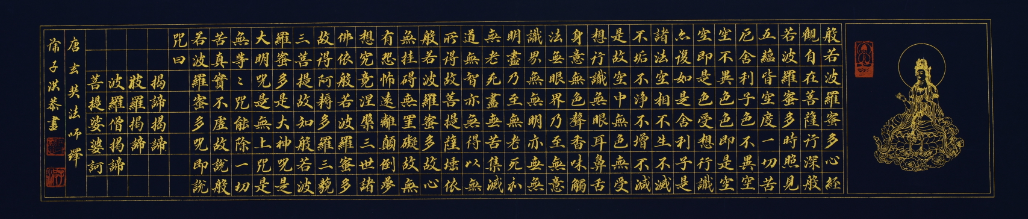 般若波羅蜜多心經
觀自在菩薩行深般
若波羅蜜多時照見
五蘊皆空度一切苦
厄舍利子色不異空
空不異色色即是空
空即是色受想行識
亦復如是舍利子是
諸法空相不生不滅
不垢不淨不增不減
是故空中無色無受
想行識無眼耳鼻舌
身意無色聲香味觸
法無眼界乃至無意
識界無無明亦無無
明盡乃至無老死亦
無老死盡無苦集滅
道無智亦無得以無
所得故菩提薩埵依
般若波羅蜜多故心
無罣礙無罣礙故無
有恐怖遠離顛倒夢
想究竟涅槃三世諸
佛依般若波羅蜜多
故得阿耨多羅三藐
三菩提故知般若波
羅蜜多是大神咒是
大明咒是無上咒是
無等等咒能除一切
苦真實不虛故說般
若波羅蜜多咒即說
咒曰
揭諦揭諦
般羅揭諦
波羅僧揭諦
菩提娑婆訶
唐玄奘法師譯
子淇恭書